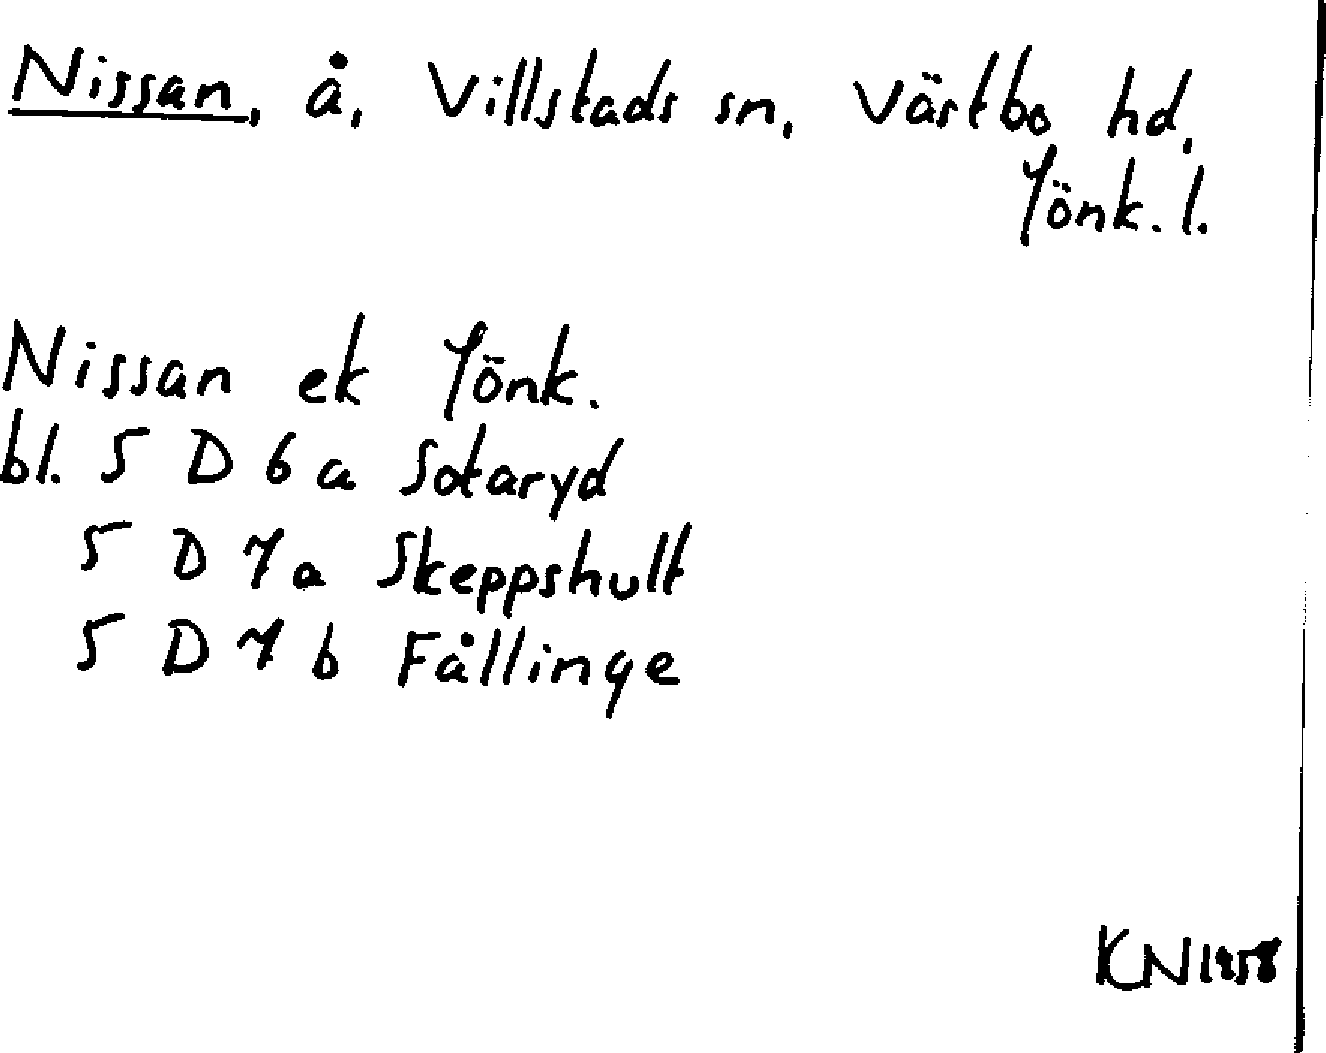 Nissan, å, Villstads sn, Västbo hd,
Jönk. l.
Nissan ek Jönk.
bl. 5 D 6 a Sotaryd
5 D 7 a Skeppshult
5 D 7 b Fållinge
KN 1958